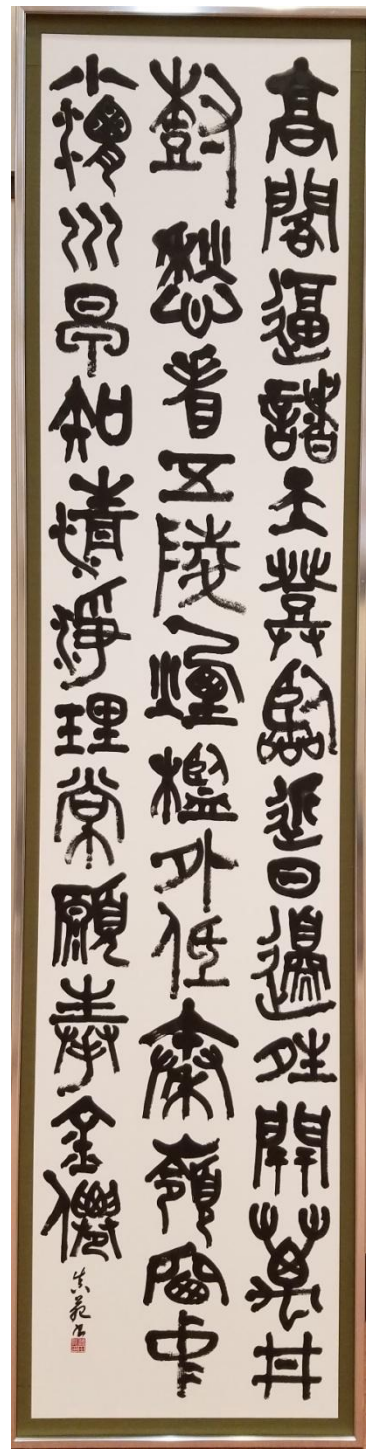 高閣逼諸天登臨近日邊晴開萬井
樹愁看五陵煙檻外低秦嶺窗中
小渭川早知清淨理常願奉金僊